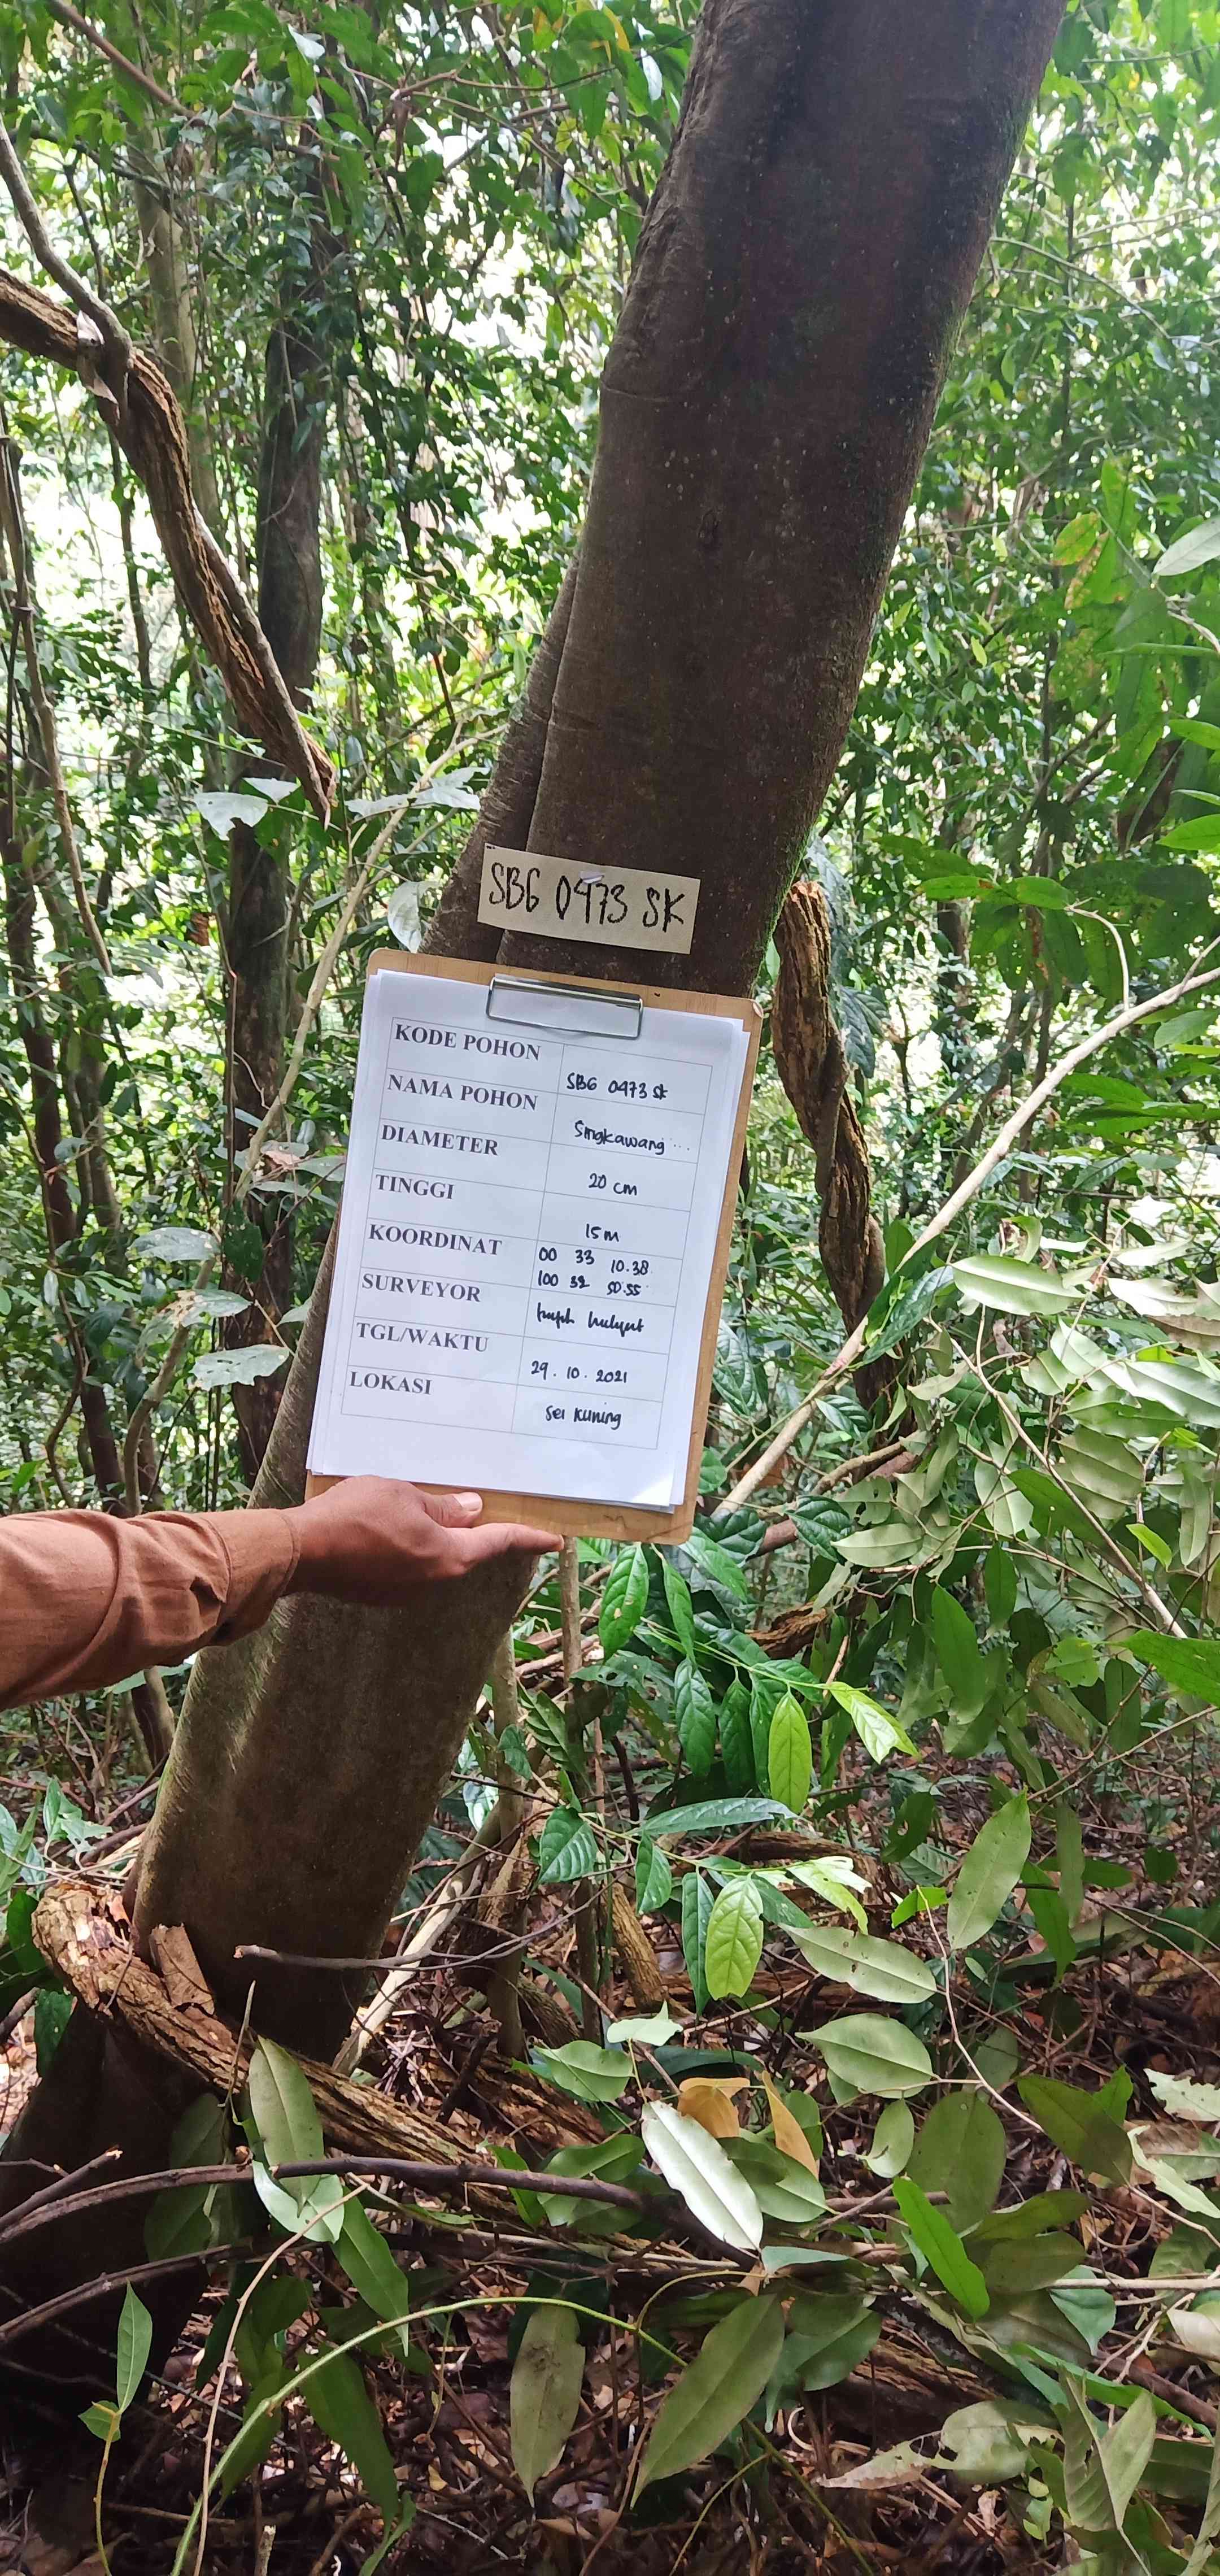 SBG 0973 SK
KODE POHON SBG 0973 SK
NAMA POHON Singkawang ...
DIAMETER 20 cm
TINGGI 15 m
KOORDINAT 00 33 10.38
100 32 50.55
SURVEYOR
TGL/WAKTU 29.10.2021
LOKASI Sei Kuning